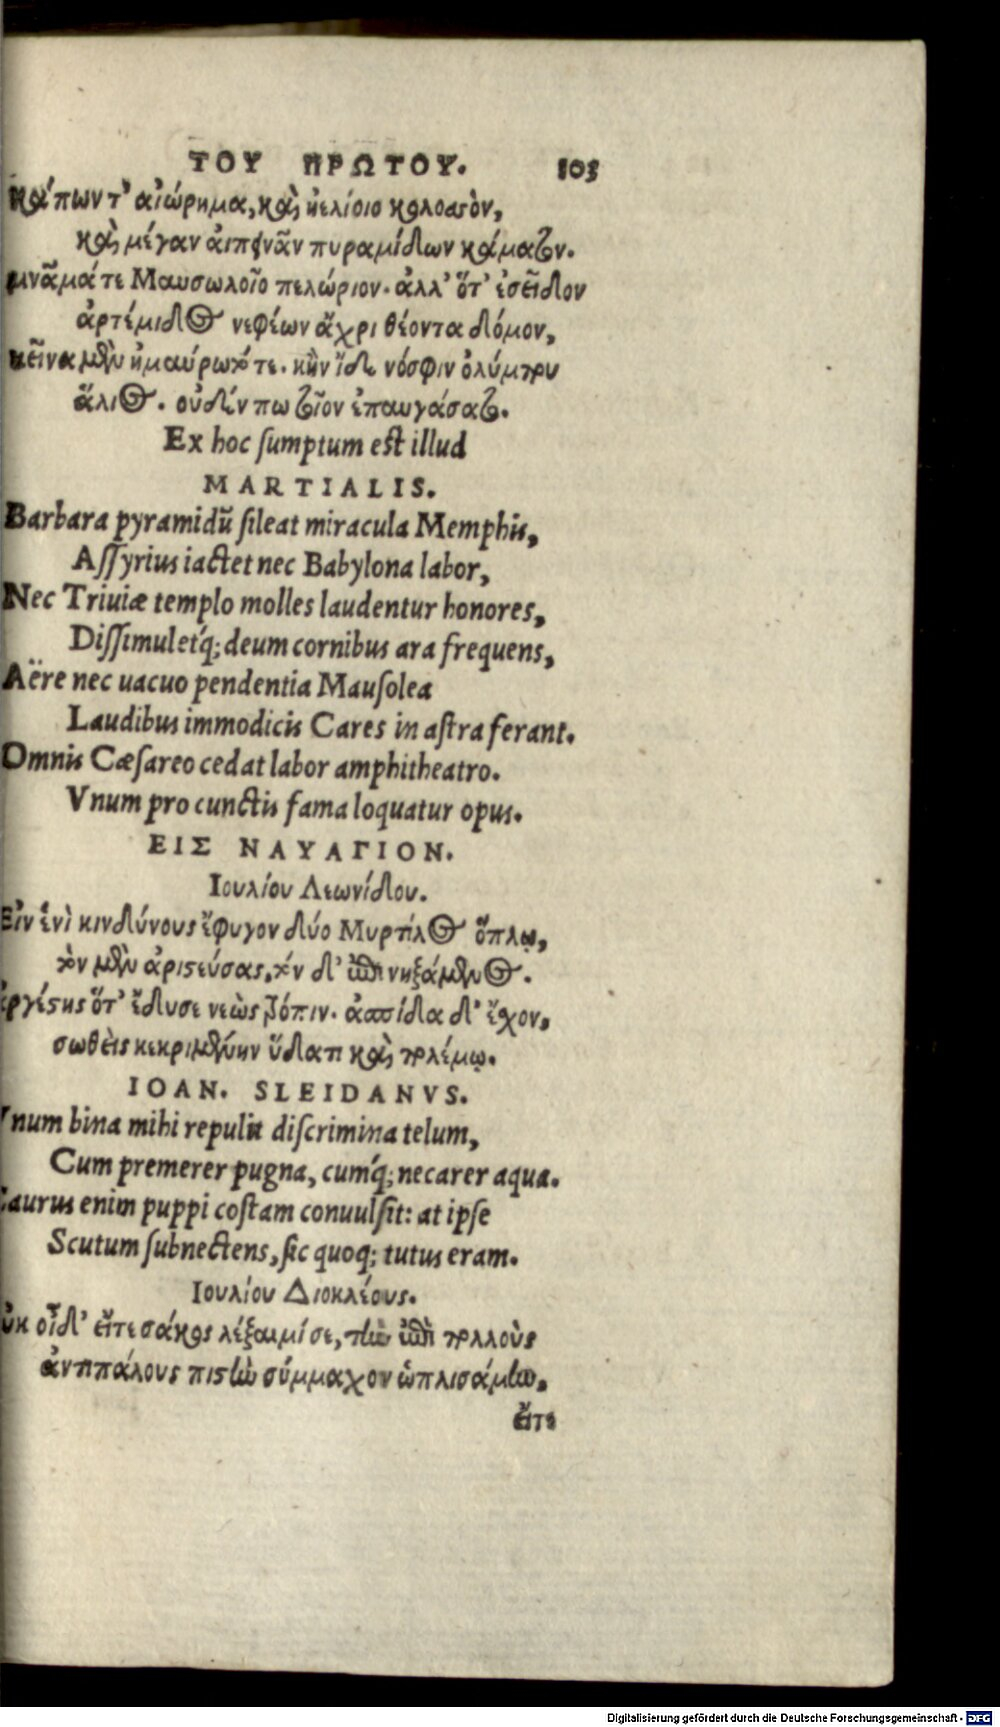 ΤΟΥ ΠΡΩΤΟΥ. 103
κάπων τ' αἰώρημα, καὶ ἠελίοιο κολοσσὸν,
καὶ μέγαν αἰπεινᾶν πυραμίδων κάματον.
μνᾶμά τε Μαυσωλοῖο πελώριον. ἀλλ' ὅτ' ἐσεῖδον
ἀρτέμιδος νεφέων ἄχρι θέοντα δόμον,
κεῖνα μὲν ἠμαύρωτό τε. κἢν ἴδε νόσφιν ὀλύμπου
ἅλιος. οὐδέν πω τοῖον ἐπαυγάσατο.
Ex hoc ſumptum eſt illud
MARTIALIS.
Barbara pyramidũ ſileat miracula Memphis,
Aſſyrius iactet nec Babylona labor,
Nec Triuiæ templo molles laudentur honores,
Diſſimulet́q; deum cornibus ara frequens,
Aëre nec uacuo pendentia Mauſolea
Laudibus immodicis Cares in aſtra ferant.
Omnis Cæſareo cedat labor amphitheatro.
Vnum pro cunctis fama loquatur opus.
ΕΙΣ ΝΑΥΑΓΙΟΝ.
Ιουλίου Λεωνίδου.
Εἶν ἑνὶ κινδύνους ἔφυγον δύο Μυρτίλος ὅπλῳ,
τὸν μὲν ἀριστεύσας, τὸν δ' ἐπινηξάμενος.
ἀργέστης ὅτ' ἔδυσε νεὼς τρόπιν. ἀσπίδα δ' ἔχον,
σωθεὶς κεκριμένην ὕδατι καὶ πολέμῳ.
IOAN. SLEIDANVS.
Vnum bina mihi repulit diſcrimina telum,
Cum premerer pugna, cuḿq; necarer aqua.
Caurus enim puppi coſtam conuulſit: at ipſe
Scutum ſubnectens, ſic quoq; tutus eram.
Ιουλίου Διοκλέους.
οὐκ οἶδ' εἴτε σάκος λέξαιμί σε, τὴν ἐπὶ πολλοὺς
ἀντιπάλους πιστὴν σύμμαχον ὡπλισάμην,
εἴτε
Digitalisierung gefördert durch die Deutsche Forschungsgemeinschaft - DFG